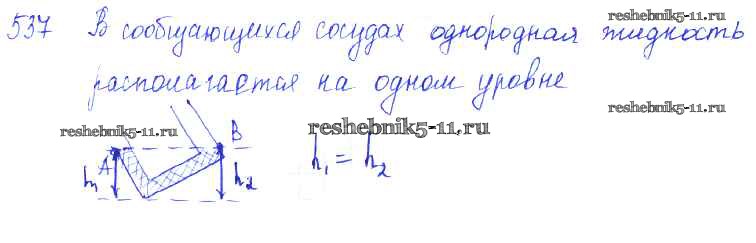 reshebnik5-11.ru
537 В сообщающихся сосудах однородная жидкость
располагается на одном уровне
reshebnik5-11.ru
reshebnik5-11.ru
reshebnik5-11.ru
A B
h₁ h₂
h₁ = h₂